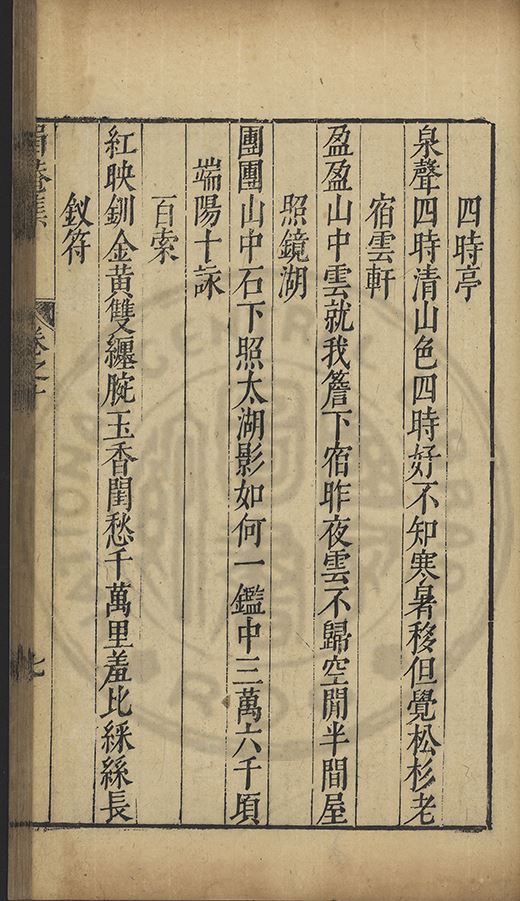 四時亭
泉聲四時清山色四時好不知寒暑移但覺松杉老
宿雲軒
盈盈山中雲就我簷下宿昨夜雲不歸空閒半間屋
照鏡湖
團團山中石下照太湖影如何一鑑中三萬六千頃
端陽十詠
百索
紅映釧金黃雙纏腕玉香閨愁千萬里羞比綵絲長
釵符
卷之十
七